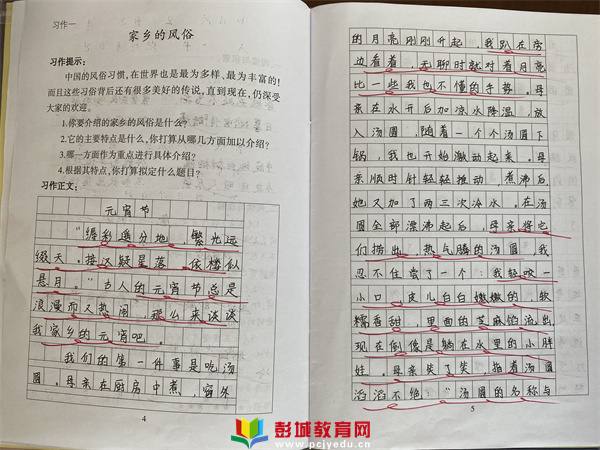 习作一
家乡的风俗
习作提示：
中国的风俗习惯，在世界也是最为多样、最为丰富的！
而且这些习俗背后还有很多美好的传说，直到现在，仍深受
大家的欢迎。
1.你要介绍的家乡的风俗是什么？
2.它的主要特点是什么，你打算从哪几方面加以介绍？
3.哪一方面作为重点进行具体介绍？
4.根据其特点，你打算拟定什么题目？
习作正文：
元宵节
“缛彩遥分地，繁光远
缀天。接汉疑星落，依楼似
悬月。”古人的元宵节总是
浪漫而又热闹，那么来谈谈
我家乡的元宵吧。
我们的第一件事是吃汤
圆。母亲在厨房中煮，窗外
4
的月亮刚刚升起，我趴在旁
边看着，无聊时就对着月亮
比一些我也不懂的手势。母
亲在水开后加凉水降温，放
入汤圆，随着一个个汤圆下
锅，我也开始激动起来。母
亲顺时针轻轻推动，煮沸后
她又加了两三次冷水。在汤
圆全部漂沸起后，母亲将它
们捞出，热气腾的汤圆，我
忍不住尝了一个：我轻咬一
小口，皮儿白白嫩嫩的，软
糯香甜，里面的芝麻馅流出，
现在倒像是躺在水里的小胖
娃。母亲笑了笑，指着汤圆
滔滔不绝：“汤圆的名称与
5
彭城教育网
www.pcjyedu.cn